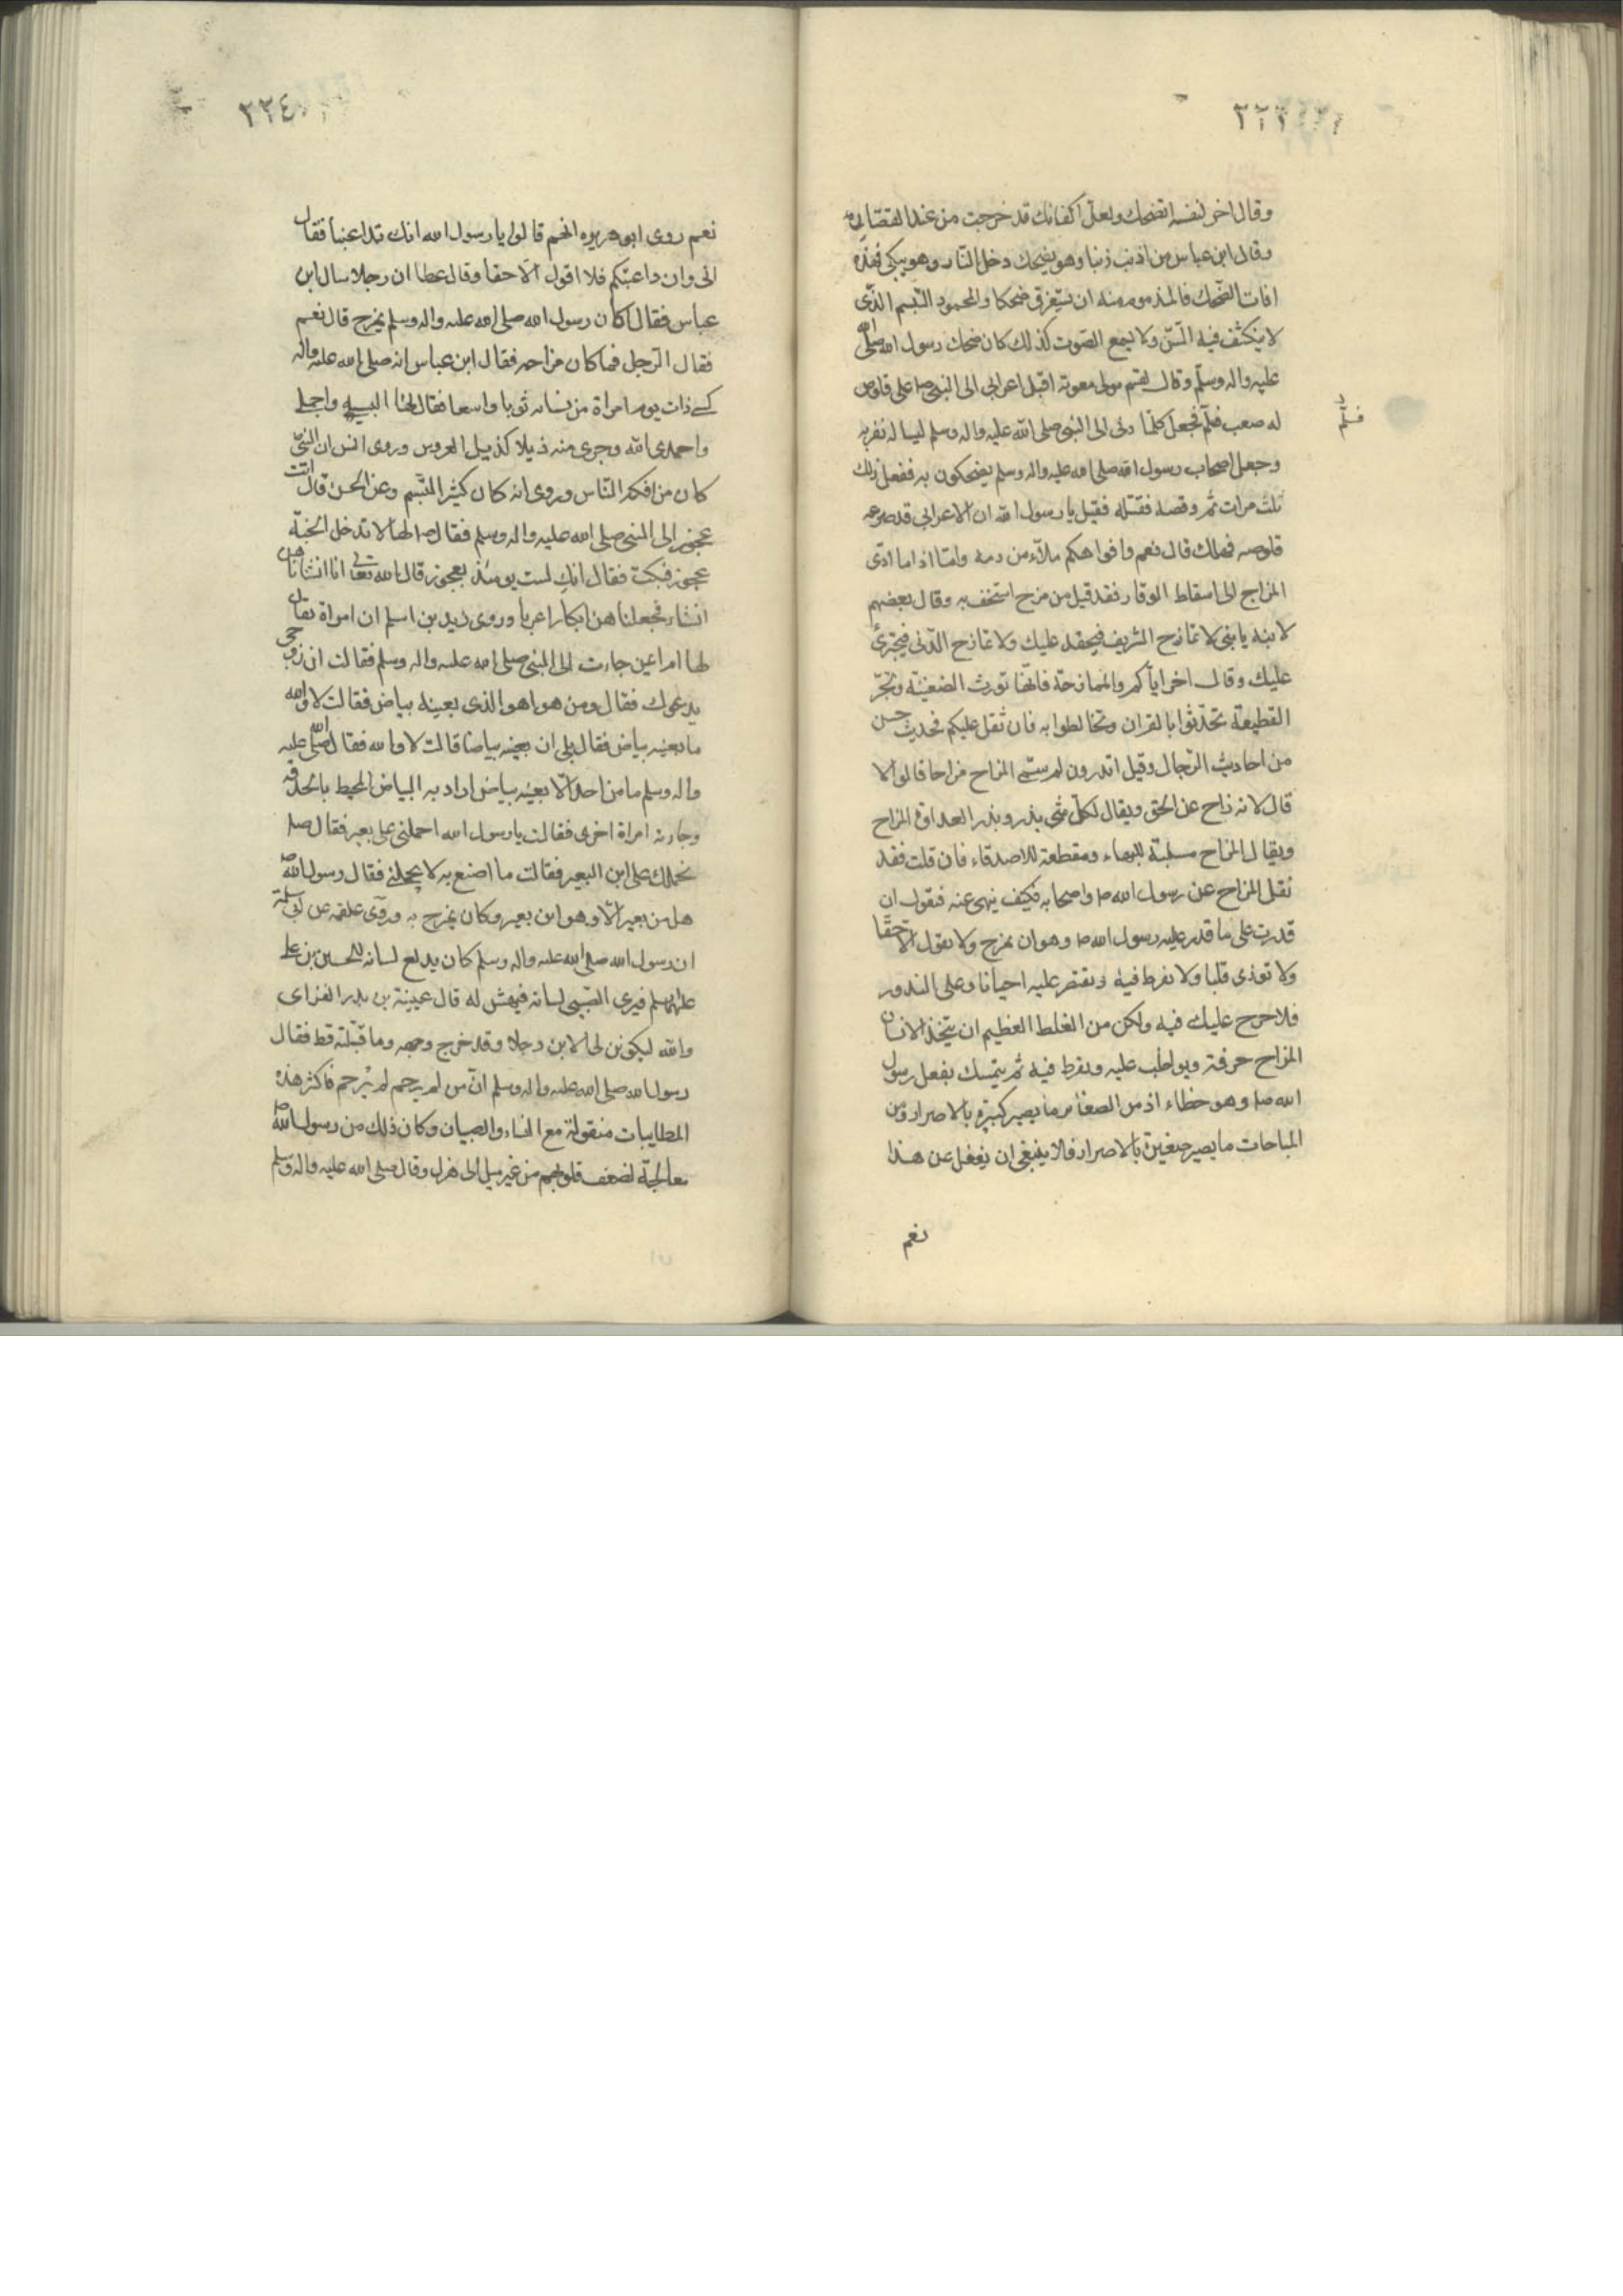 وقال اخر لنفسه اتضحك ولعل اكفانك قد خرجت من عند القصار
وقال ابن عباس من اذنب ذنبا وهو يضحك دخل النار وهو يبكى فهذه
افات الضحك فالمذموم منه ان يستغرق ضحكا والمحمود التبسم الذى
لا ينكشف فيه السن ولا يسمع الصوت كذلك كان ضحك رسول الله صلى الله
عليه واله وسلم وقال لقسم مولى معوية اقبل اعرابى الى النبى ص على قلوص
له صعب فسلم فجعل كلما دنى الى النبى صلى الله عليه واله وسلم ليسأله نفر به
وجعل اصحاب رسول الله صلى الله عليه واله وسلم يضحكون به ففعل ذلك
ثلث مرات ثم وقصه فقتله فقيل يا رسول الله ان الاعرابى قد صرعه
قلوصه فهلك قال نعم وافواهكم ملاء من دمه واما اذا ادى
المزاح الى اسقاط الوقار فقد قيل من مزح استخف به وقال بعضهم
لابنه يا بنى لا تمازح الشريف فيحقد عليك ولا تمازح الدنى فيجترئ
عليك وقال اخر اياكم والممازحة فانها تورث الضغينة وتجر
القطيعة تحدثوا بالقران وتخالطوا به فان ثقل عليكم فحديث حسن
من احاديث الرجال وقيل اتدرون لم سمى المزاح مزاحا قالوا لا
قال لانه زاح عن الحق ويقال لكل شى بذر وبذر العداوة المزاح
ويقال المزاح مسلبة للبهاء ومقطعة للاصدقاء فان قلت فقد
نقل المزاح عن رسول الله ص واصحابه فكيف ينهى عنه فنقول ان
قدرت على ما قدر عليه رسول الله ص وهو ان يمزح ولا يقول الا حقا
ولا توذى قلبا ولا تفرط فيه وتقتصر عليه احيانا وعلى الندور
فلا حرج عليك فيه ولكن من الغلط العظيم ان يتخذ الانسان
المزاح حرفة ويواظب عليه ويفرط فيه ثم يتمسك بفعل رسول
الله ص وهو خطاء اذ من الصغاير ما يصير كبيرة بالاصرار ومن
المباحات ما يصير صغيرة بالاصرار فلا ينبغى ان يغفل عن هذا
نعم
٢٢٤
نعم روى ابو هريره انهم قالوا يا رسول الله انك تداعبنا فقال
انى وان داعبتكم فلا اقول الا حقا وقال عطا ان رجلا سال ابن
عباس فقال اكان رسول الله صلى الله عليه واله وسلم يمزح قال نعم
فقال الرجل فما كان مزاحه فقال ابن عباس انه صلى الله عليه واله
كسى ذات يوم امراة من نسائه ثوبا واسعا فقال لها البسيه
واحمدى الله وجرى منه ذيلا كذيل العروس وروى انس ان النبى
كان من افكه الناس وروى انه كان كثير التبسم وعن الحسن قال اتت
عجوز الى النبى صلى الله عليه واله وسلم فقال ص لها لا تدخل الجنة
عجوز فبكت فقال انك لست يومئذ بعجوز قال الله تعالى انا انشاناهن
انشاء فجعلناهن ابكارا عربا وروى زيد بن اسلم ان امراة يقال
لها ام ايمن جاءت الى النبى صلى الله عليه واله وسلم فقالت ان زوجى
يدعوك فقال ومن هو اهو الذى بعينه بياض فقالت لا والله
ما بعينه بياض فقال بلى ان بعينه بياضا قالت لا والله فقال صلى الله عليه
واله وسلم ما من احد الا بعينه بياض اراد به البياض المحيط بالحدقه
وجاءته امراة اخرى فقالت يا رسول الله احملنى على بعير فقال ص
نحملك على ابن البعير فقالت ما اصنع به لا يحملنى فقال رسول الله ص
هل من بعير الا وهو ابن بعير وكان يمزح به وروى علقمه عن ابى سلمة
ان رسول الله صلى الله عليه واله وسلم كان يدلع لسانه للحسين بن على
عليهما السلم فيرى الصبى لسانه فيهش له قال عيينة بن بدر الفزارى
والله ليكونن لى الابن رجلا وقد خرج وجهه وما قبلته قط فقال
رسول الله صلى الله عليه واله وسلم ان من لم يرحم لم يُرحم فاكثر هذه
المطايبات منقولة مع النساء والصبيان وكان ذلك من رسول الله ص
معالجة لضعف قلوبهم من غير ميل الى هزل وقال صلى الله عليه واله وسلم